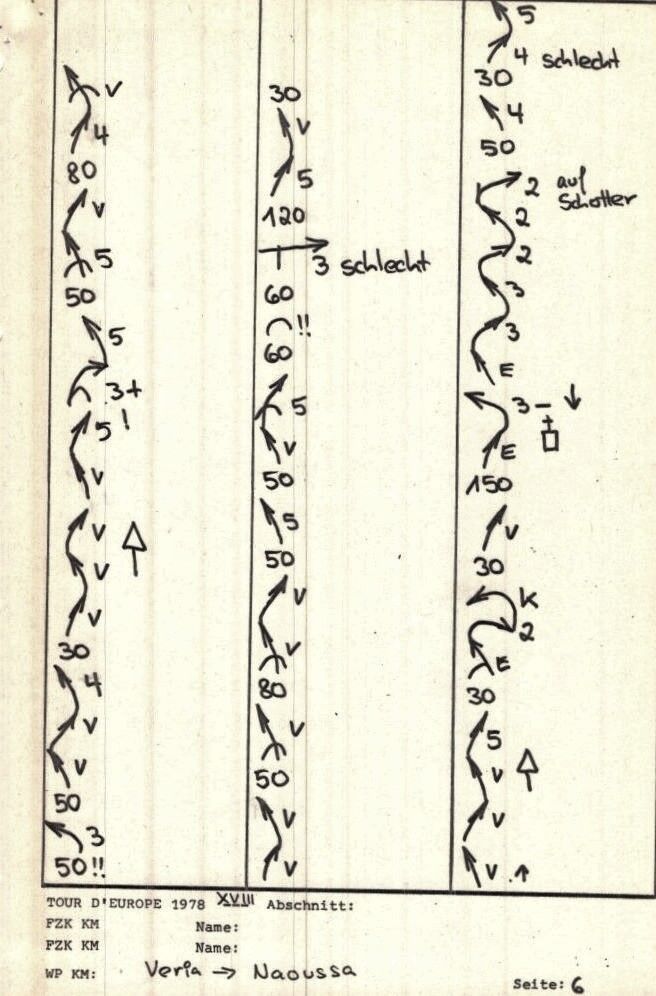 V
4
80
V
5
50
5
3+
5 !
V
V
V
V
30
4
V
V
50
3
50!!
30
V
5
120
3 schlecht
60
!!
60
5
V
50
5
50
V
V
80
V
50
V
V
5
4 schlecht
30
4
50
2 auf
Schotter
2
2
3
3
E
3-
E
150
V
30
K
2
E
30
5
V
V
V
TOUR D'EUROPE 1978 XVIII Abschnitt:
FZK KM Name:
FZK KM Name:
WP KM: Veria → Naoussa
Seite: 6